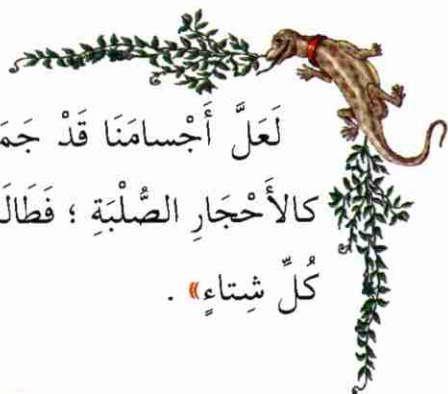 لَعَلَّ أَجْسامَنَا قَدْ
كالأَحْجَارِ الصُّلْبَةِ ؛
كُلِّ شِتاءٍ» .